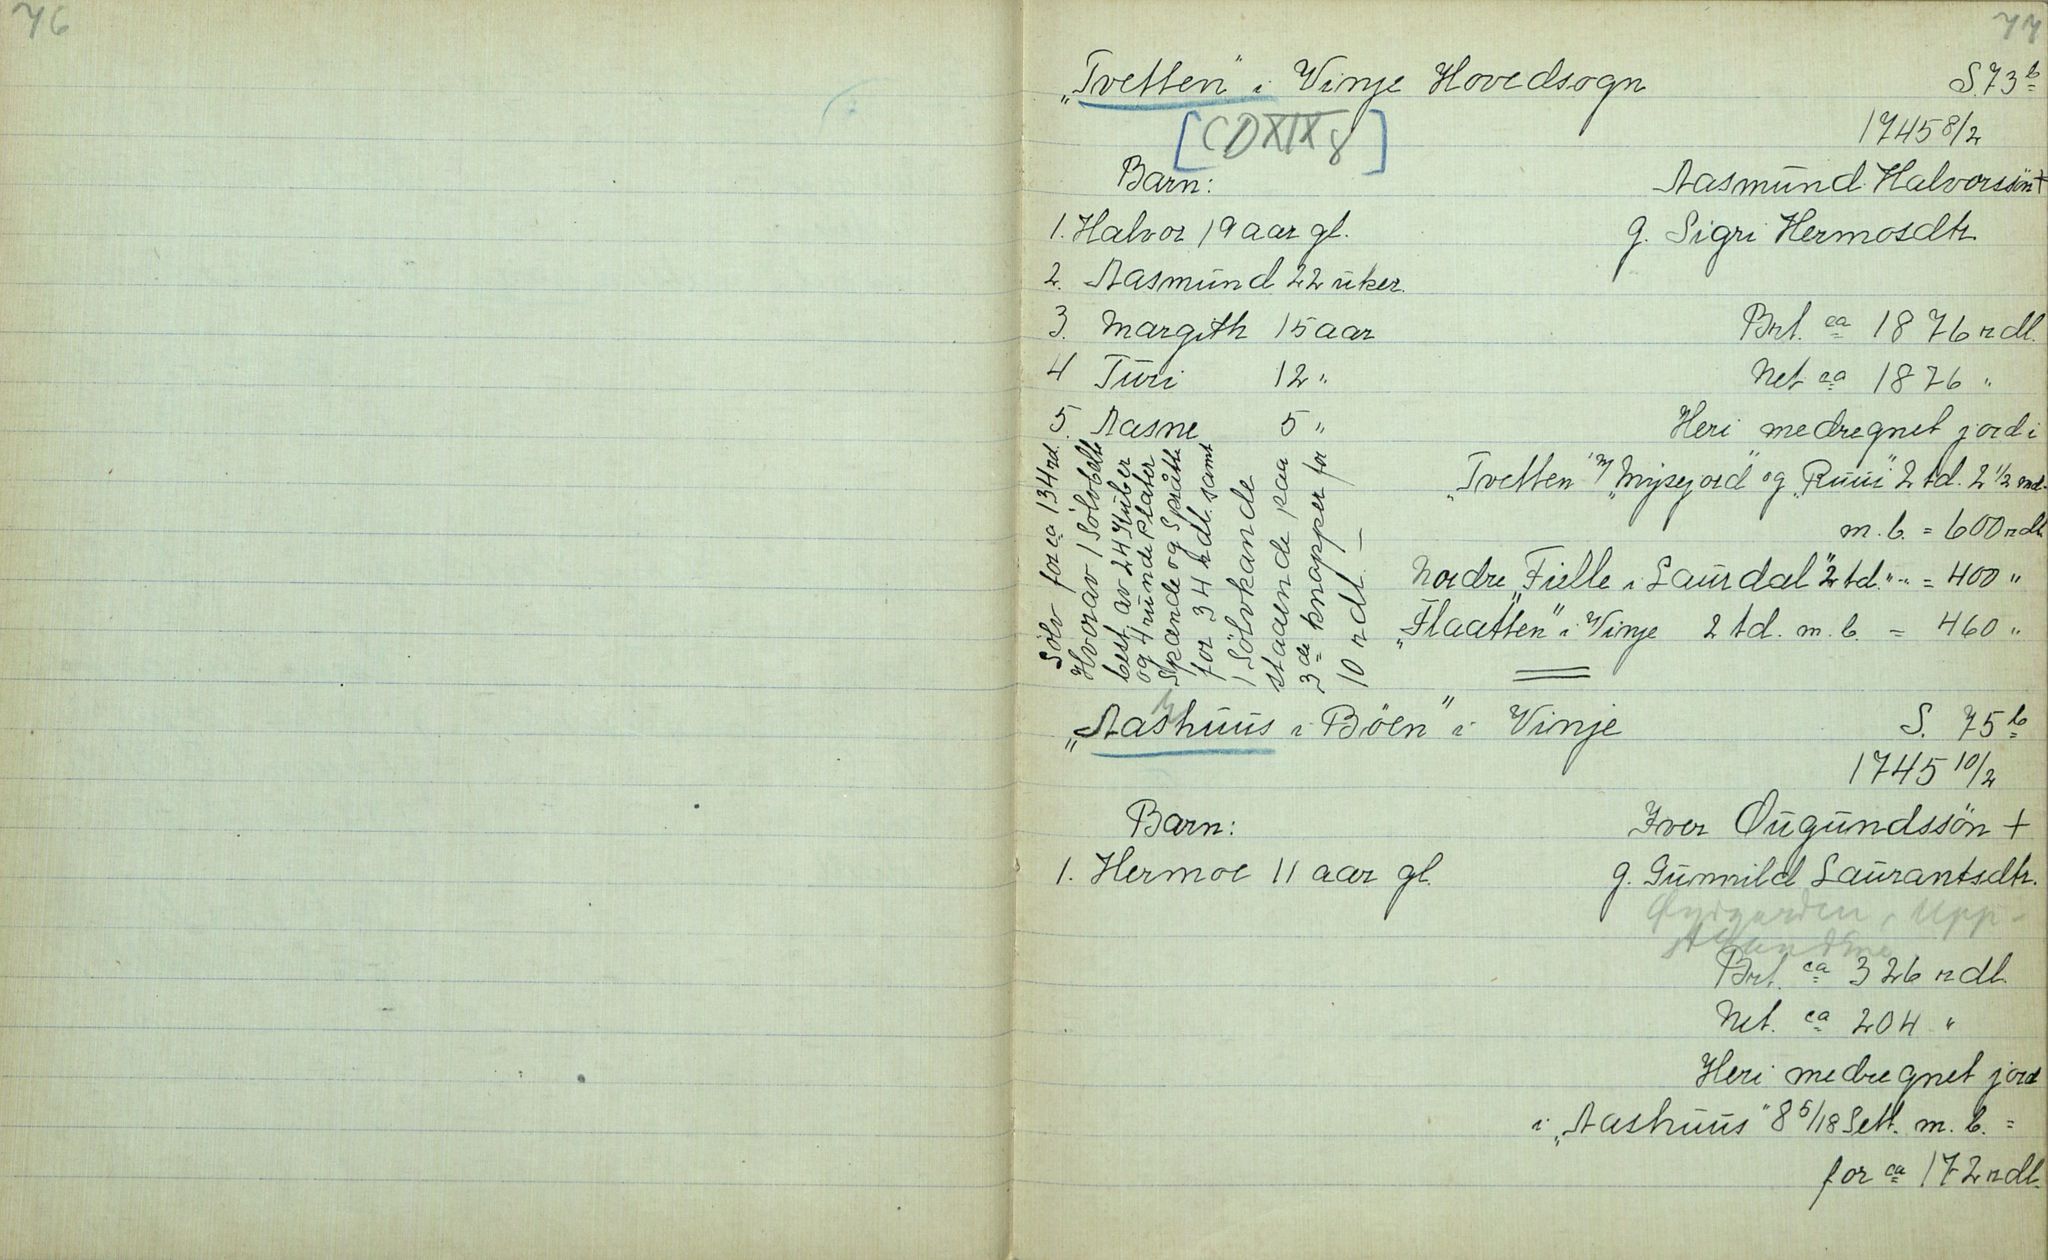 76
77
„Tvetten" i Vinje Hovedsogn S. 73 b
[CDXIX 8] 1745 8/2
Barn: Aasmund Halvorssön +
1. Halvor 19 aar gl. g. Sigri Hermosdtr.
2. Aasmund 22 uker.
3. Margith 15 aar Brt. ca 1876 rdl.
4 Turi 12 " Net ca 1876 "
5. Aasne 5 " Heri medregnet jord i
„Tvetten" m/ „Mysejord" og „Ruui" 2 td. 2 1/2 smd.
m. b. = 600 rdl.
Nordre „Fielle i Laurdal" 2 td. " " = 400 "
„Flaatten" i Vinje 2 td. m. b. = 460 "
Sölv for ca 134 rd.
Hvorav 1 Sölvbelte
best. av 24 Stüber
og 4 runde Plater
Spænde og Sprötte
for 34 rdl. samt
1 Sölvkande
staaende paa
3de knapper for
10 rdl. —
„Aashuus i Böen" i Vinje S. 75 b
1745 10/2
Barn: Iver Øugundssön +
1. Hermoe 11 aar gl. g. Gunnild Laurantsdtr.
Øygarden, Upp-
Brt. ca 326 rdl.
Net. ca 204 "
Heri medregnet jord
i „Aashuus" 8 5/18 Sett. m. b. =
for ca 172 rdl.